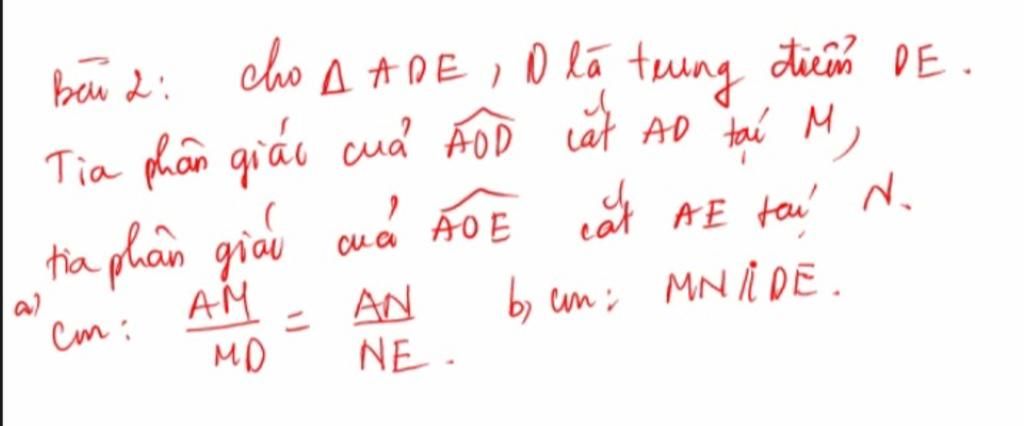 Bài 2: cho Δ ADE, O là trung điểm DE.
Tia phân giác cuả AOD cắt AD tại M,
tia phân giác cuả AOE cắt AE tại N.
a) Cm: AM/MD = AN/NE. b, cm: MN // DE.